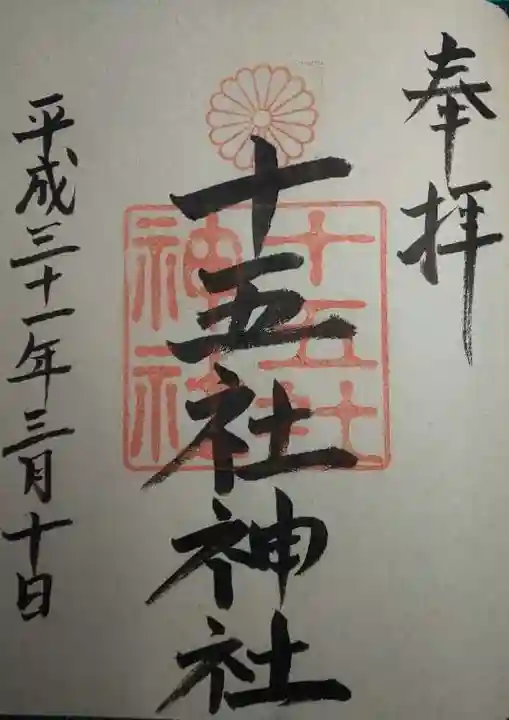 奉拝
十五社神社
十五社
神社
平成三十一年三月十日